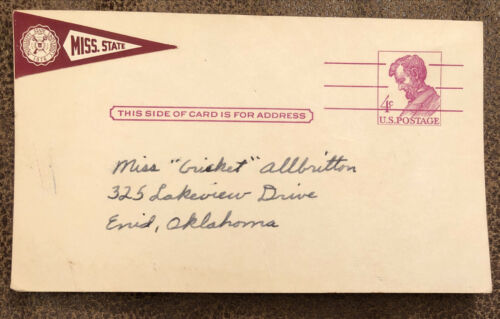 MISS. STATE
4c
U.S. POSTAGE
THIS SIDE OF CARD IS FOR ADDRESS
Miss "Cricket" Allbritton
325 Lakeview Drive
Enid, Oklahoma